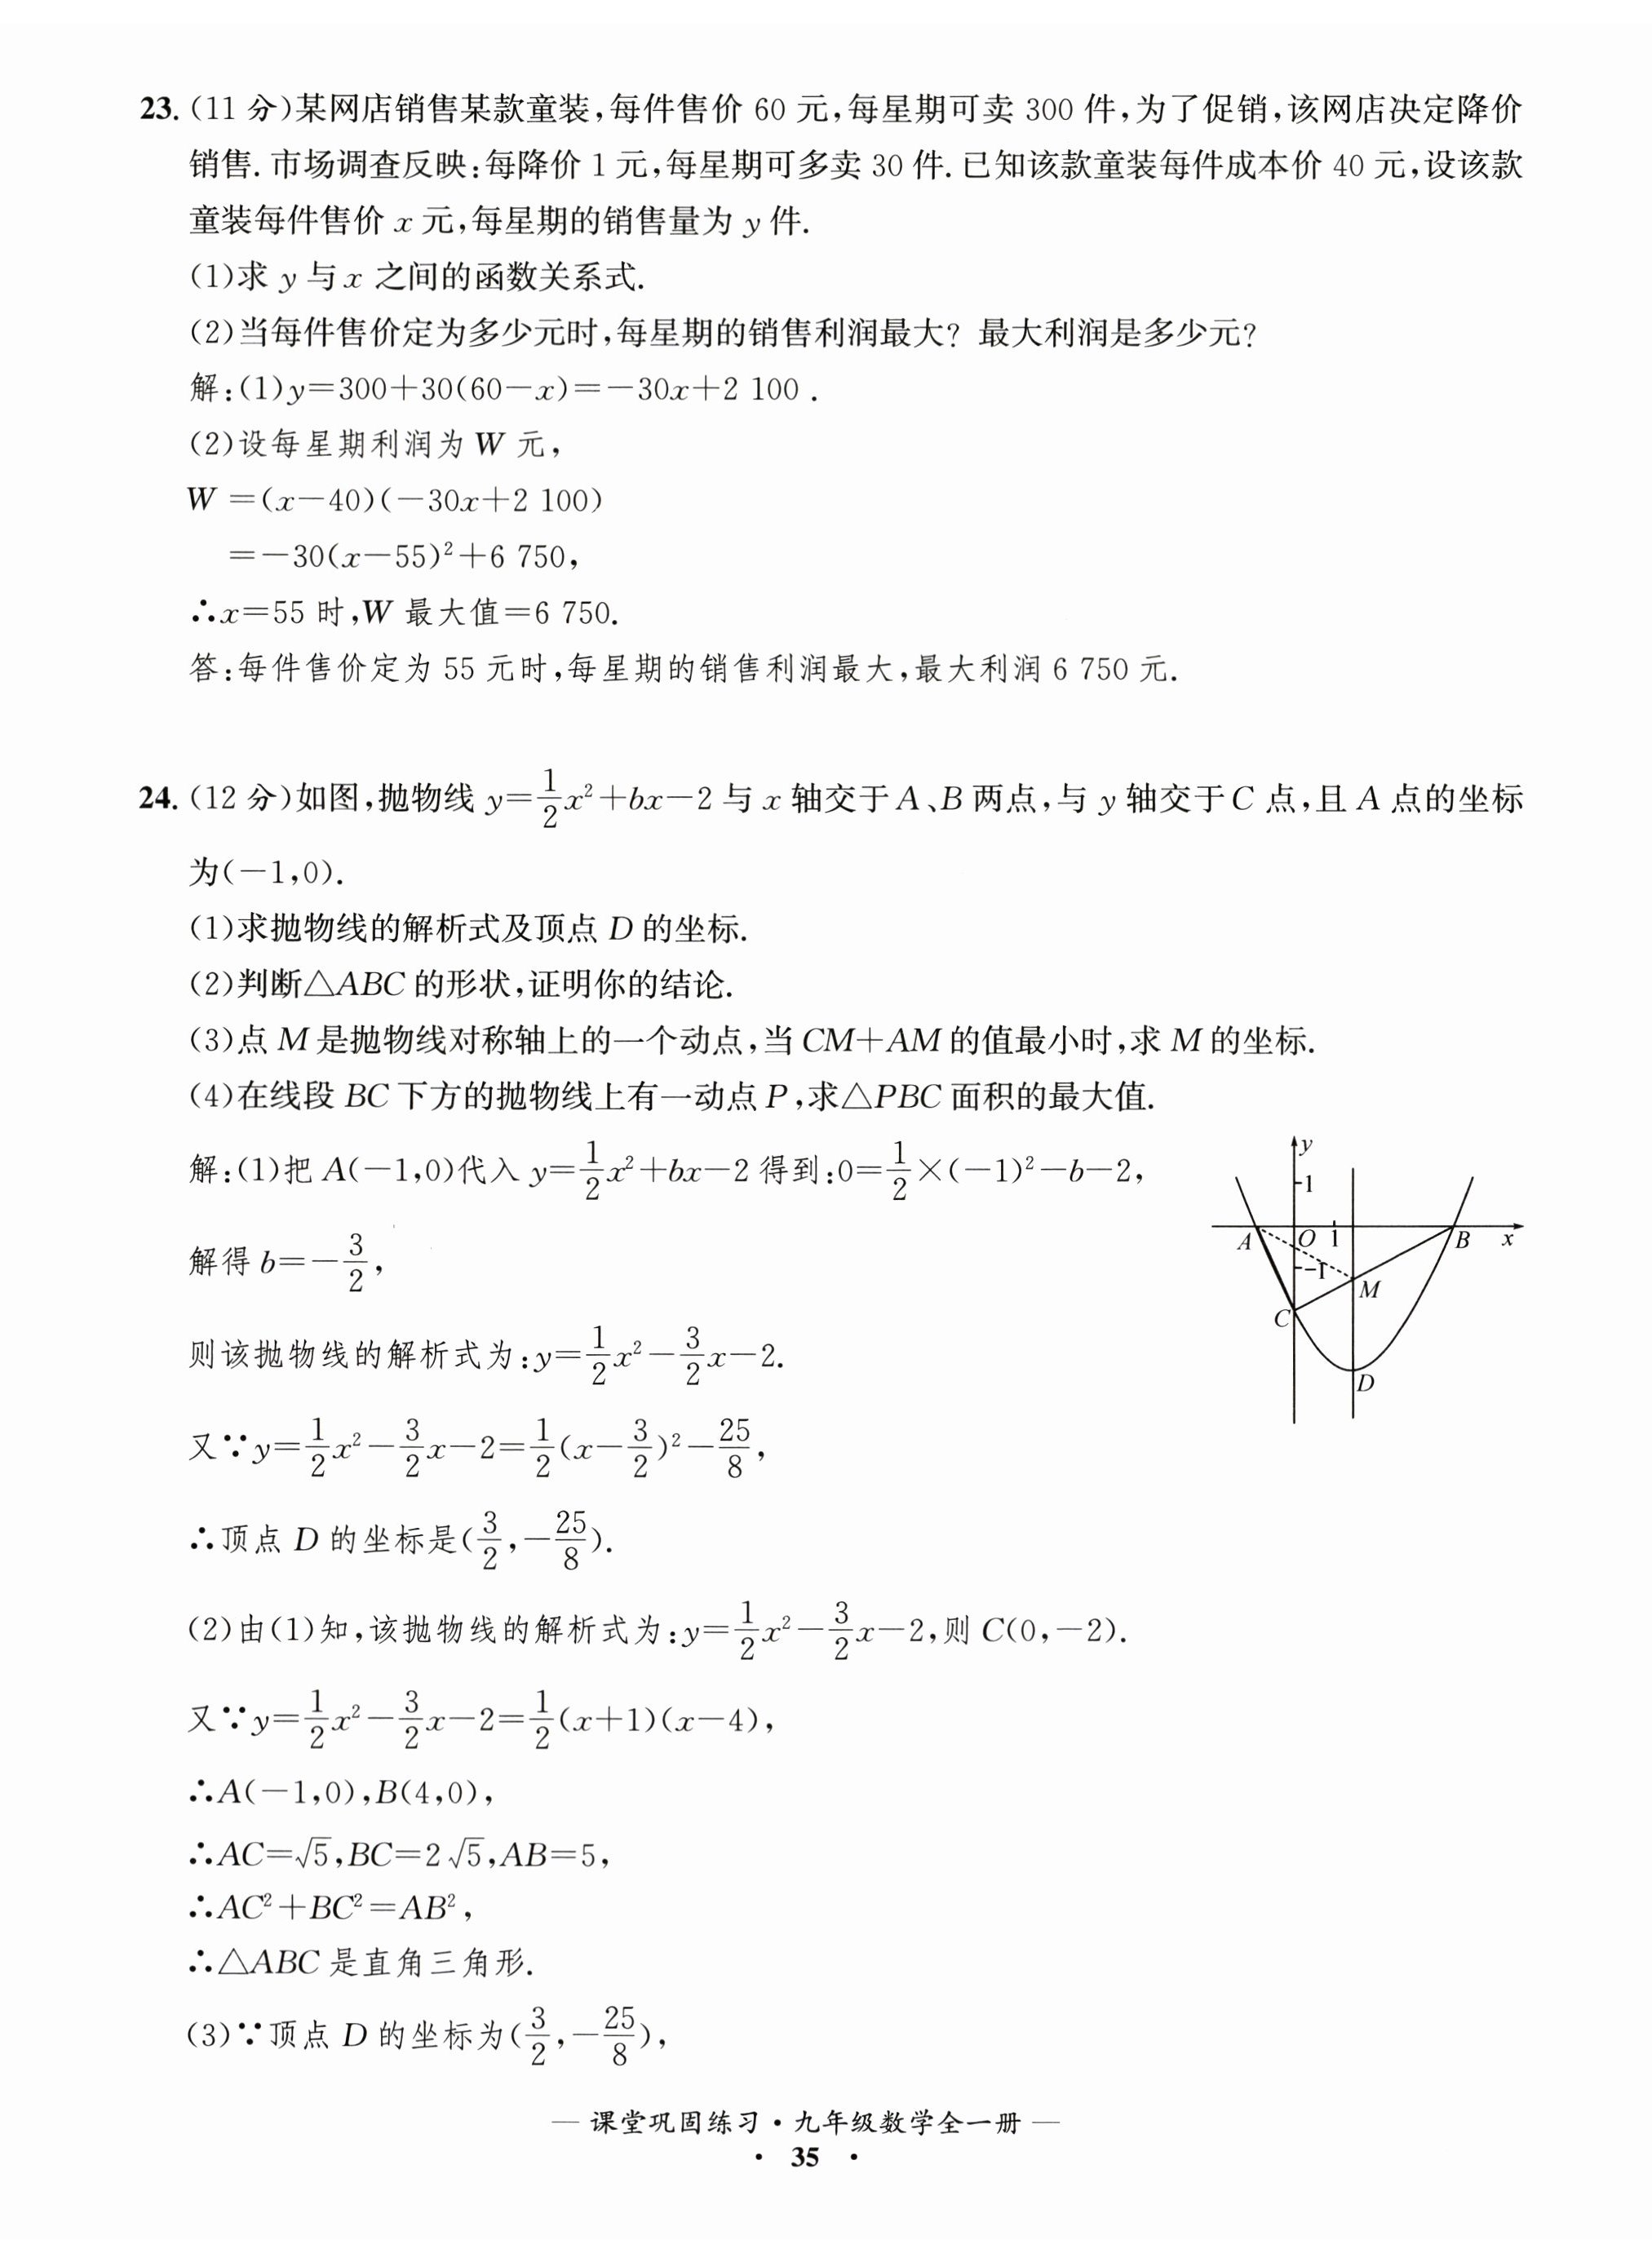 23.(11 分)某网店销售某款童装,每件售价 60 元,每星期可卖 300 件,为了促销,该网店决定降价
销售.市场调查反映:每降价 1 元,每星期可多卖 30 件.已知该款童装每件成本价 40 元,设该款
童装每件售价 x 元,每星期的销售量为 y 件.
(1)求 y 与 x 之间的函数关系式.
(2)当每件售价定为多少元时,每星期的销售利润最大? 最大利润是多少元?
解:(1)y=300+30(60-x)=-30x+2 100 .
(2)设每星期利润为 W 元,
W =(x-40)(-30x+2 100)
=-30(x-55)²+6 750,
∴x=55 时,W 最大值=6 750.
答:每件售价定为 55 元时,每星期的销售利润最大,最大利润 6 750 元.
24.(12 分)如图,抛物线 y=1/2x²+bx-2 与 x 轴交于 A、B 两点,与 y 轴交于 C 点,且 A 点的坐标
为(-1,0).
(1)求抛物线的解析式及顶点 D 的坐标.
(2)判断△ABC 的形状,证明你的结论.
(3)点 M 是抛物线对称轴上的一个动点,当 CM+AM 的值最小时,求 M 的坐标.
(4)在线段 BC 下方的抛物线上有一动点 P,求△PBC 面积的最大值.
解:(1)把 A(-1,0)代入 y=1/2x²+bx-2 得到:0=1/2×(-1)²-b-2,
解得 b=-3/2,
则该抛物线的解析式为:y=1/2x²-3/2x-2.
又∵y=1/2x²-3/2x-2=1/2(x-3/2)²-25/8,
∴顶点 D 的坐标是(3/2,-25/8).
y
1
A
O
1
B
x
-1
M
C
D
(2)由(1)知,该抛物线的解析式为:y=1/2x²-3/2x-2,则 C(0,-2).
又∵y=1/2x²-3/2x-2=1/2(x+1)(x-4),
∴A(-1,0),B(4,0),
∴AC=√5,BC=2√5,AB=5,
∴AC²+BC²=AB²,
∴△ABC 是直角三角形.
(3)∵顶点 D 的坐标为(3/2,-25/8),
— 课堂巩固练习·九年级数学全一册 —
· 35 ·